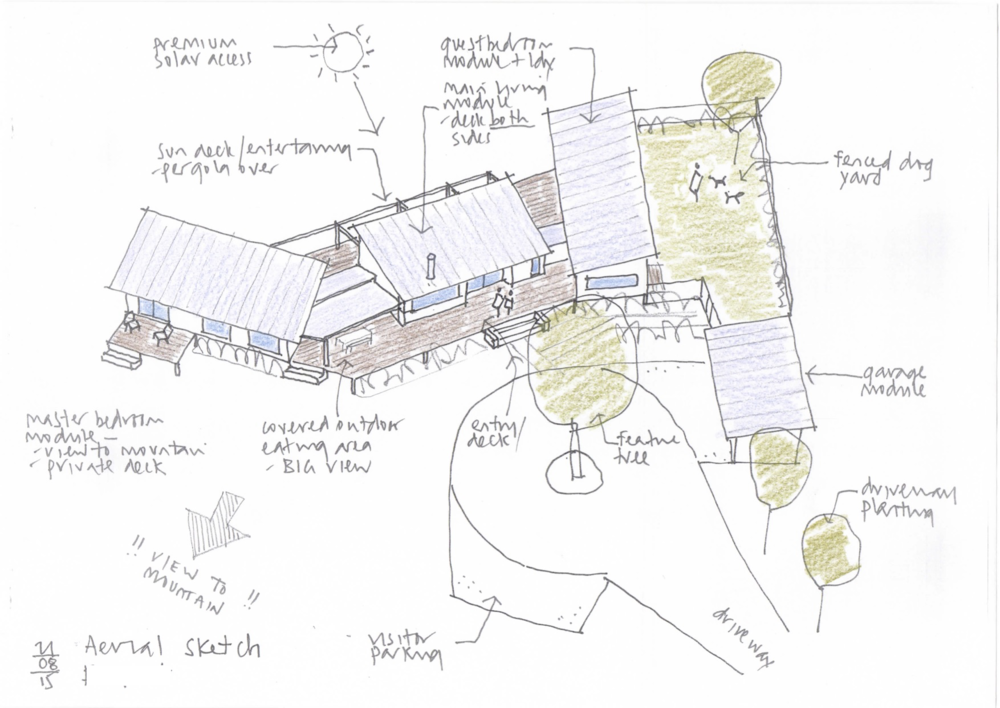 premium
solar access
guest bedroom
module + ldy
main living
module
- deck both
sides
sun deck/entertaining
- pergola over
fenced dog
yard
garage
module
master bedroom
module -
- view to mountain
- private deck
covered outdoor
eating area
- BIG VIEW
entry/
deck
feature
tree
driveway
planting
!! VIEW TO
MOUNTAIN !!
visitor
parking
driveway
Aerial sketch
08
15